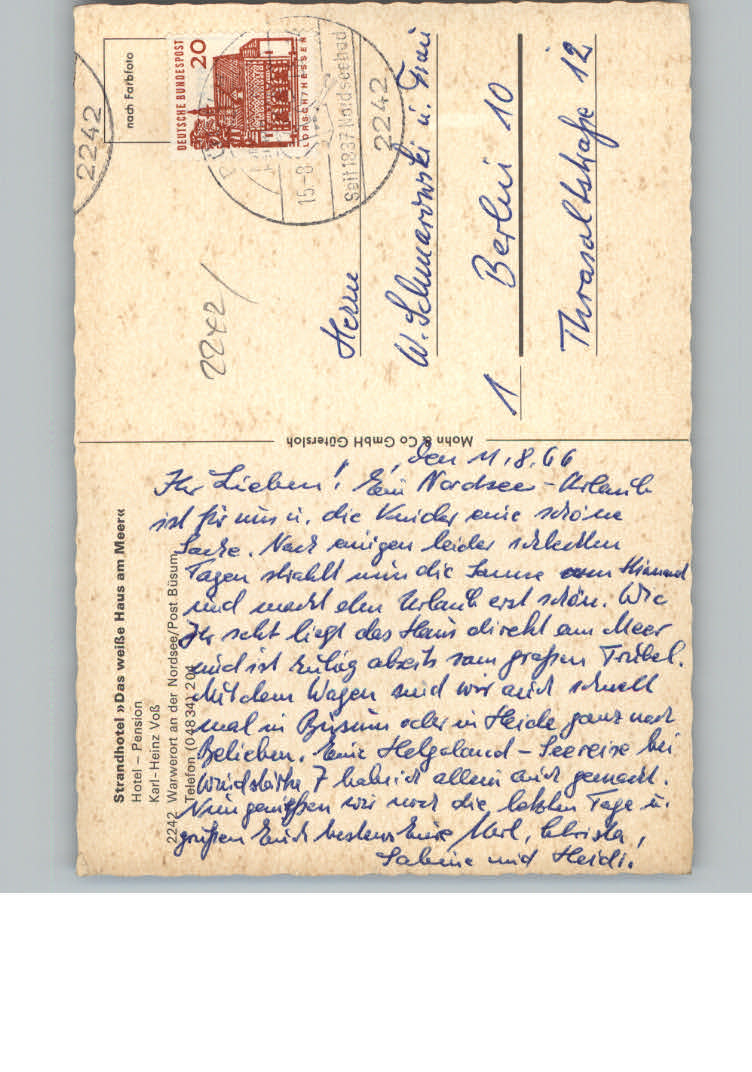 Strandhotel »Das weiße Haus am Meer«
Hotel – Pension
Karl-Heinz Voß
2242 Warwerort an der Nordsee/Post Büsum
Telefon (04834) 204
den 11.8.66
Ihr Lieben! Ein Nordsee-Urlaub
ist für uns u. die Kinder eine schöne
Sache. Nach einigen leider schlechten
Tagen strahlt nun die Sonne vom Himmel
und macht den Urlaub erst schön. Wie
Ihr seht liegt das Haus direkt am Meer
und ist ruhig abseits vom großen Trubel.
Mit dem Wagen sind wir auch schnell
mal in Büsum oder in Heide ganz nach
Belieben. Eine Helgoland-Seereise bei
Windstärke 7 hab ich allein auch gemacht.
Nun genießen wir noch die letzten Tage u.
grüßen Euch bestens Eure Karl, Christa,
Sabine und Heidi.
Mohn & Co GmbH Gütersloh
nach Farbfoto
DEUTSCHE BUNDESPOST
20
LORSCH/HESSEN
2242
2242
15-8
Seit 1837 Nordseebad
2242
Herrn
W. Schmarowski u. Frau
1 Berlin 10
Thrasoltstraße 12